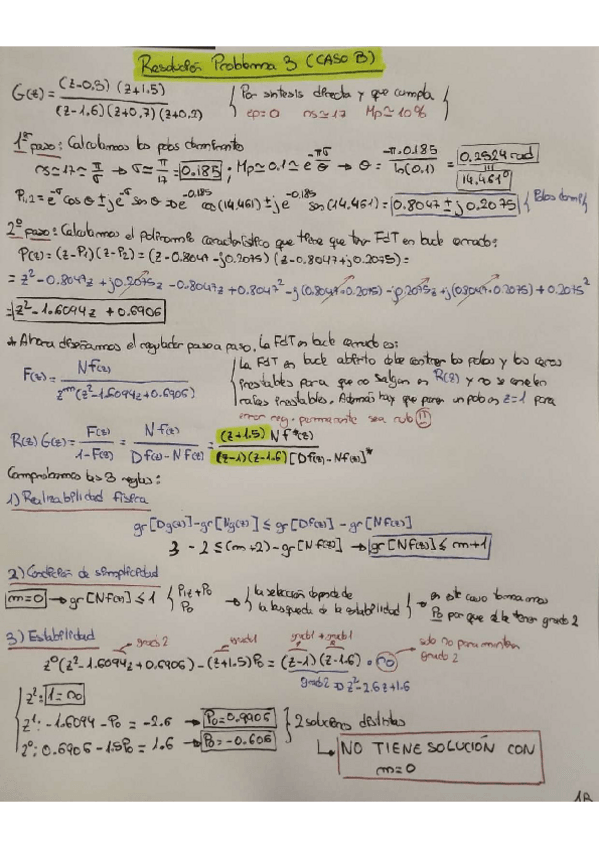 Resolución Problema 3 (CASO B)
G(z) = (z-0.3) (z+1.5) / (z-1.6)(z+0.7)(z+0.2) { Por síntesis directa y que cumpla
ep=0 ns≃17 Mp≃10% {
1er paso: Calculamos los polos dominantes
ns≃17≃ π/σ → σ≃ π/17 = 0.185 ; Mp≃0.1≃e^(-πσ/θ) → θ = -π·0.185 / ln(0.1) = 0.2524 rad
14.461°
P1,2 = e^-σ cos θ ± j e^-σ sen θ ⇒ e^-0.185 cos(14.461) ± j e^-0.185 sen(14.461) = 0.8047 ± j0.2075 {
2º paso: Calculamos el polinomio característico que tiene que tener FdT en bucle cerrado:
P(z) = (z-P1)(z-P2) = (z-0.8047-j0.2075) (z-0.8047+j0.2075) =
= z² - 0.8047z + j0.2075z - 0.8047z + 0.8047² - j(0.8047·0.2075) - j0.2075z + j(0.8047·0.2075) + 0.2075²
= z² - 1.6094z + 0.6906
* Ahora diseñamos el regulador paso a paso. La FdT en bucle cerrado es:
F(z) = Nf(z) / z^m(z²-1.6094z+0.6906)
{ La FdT en bucle abierto debe contener los polos y los ceros
inestables para que no salgan en R(z) y no se cancelen
raíces inestables. Además hay que poner un polo en z=1 para
error reg. permanente sea nulo
R(z) G(z) = F(z) / 1-F(z) = Nf(z) / Df(z)-Nf(z) = (z+1.5) Nf*(z) / (z-1)(z-1.6) [Df(z)-Nf(z)]*
Comprobamos las 3 reglas:
1) Realizabilidad física
gr[Dg(z)]-gr[Ng(z)] ≤ gr[Df(z)] - gr[Nf(z)]
3 - 2 ≤ (m+2) - gr[Nf(z)] → gr[Nf(z)] ≤ m+1
2) Condición de simplicidad
m=0 → gr[Nf(z)] ≤ 1 { P1z+P0
P0 → { la selección depende de
la búsqueda de la estabilidad } → { en este caso tomamos
P0 porque debe tener grado 2
3) Estabilidad
grado 2 grado1 grado1 + grado1 solo n0 para mantener
grado 2
z⁰(z²-1.6094z+0.6906) - (z+1.5)P0 = (z-1)(z-1.6) · n0
grado 2 ⇒ z²-2.6z+1.6
z²: 1 = n0
z¹: -1.6094 - P0 = -2.6 → P0 = 0.9906
z⁰: 0.6906 - 1.5P0 = 1.6 → P0 = -0.606
} 2 soluciones distintas
↳ NO TIENE SOLUCIÓN CON
m=0